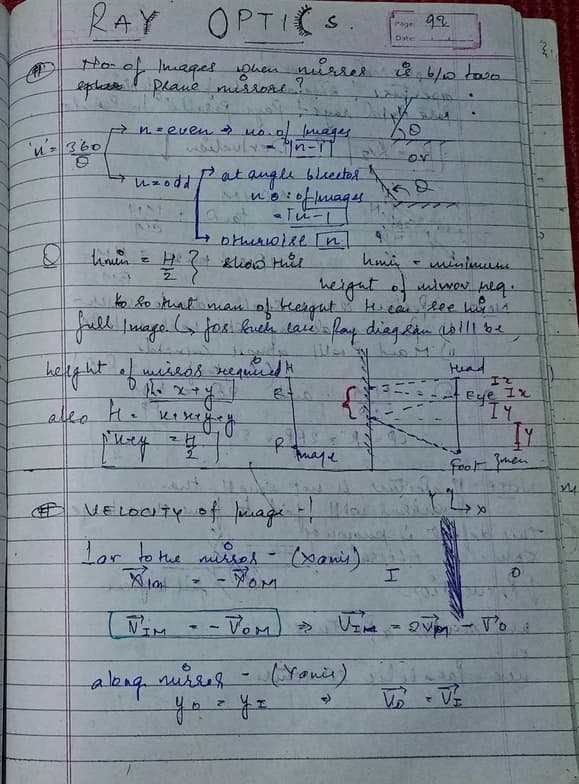 RAY OPTICS.
Page: 92
Date:
No. of Images when mirror is b/w two
plane mirrors?
'n' = 360/θ
n = even ⇒ no. of Images
= n-1
θ
or
θ
n = odd
at angle bisector
no. of Images
= n-1
otherwise n
Q hmin = H/2 } show this
hmin = minimum
height of mirror req.
so that man of height H can see his
full Image (→ for such case Ray diagram will be
height of mirror required
h = x+y
also H = x+x+y+y
x+y = H/2
H
E
F
Image
Head
Eye
x
x
y
y
Foot
man
# VELOCITY of Image -!
Y
X
⊥ar to the mirror - (X axis)
X⃗IM = - X⃗OM
I
O
V⃗IM = - V⃗OM ⇒ V⃗I = 2V⃗M - V⃗O
along mirror - (Y axis)
yO = yI ⇒ V⃗O = V⃗I